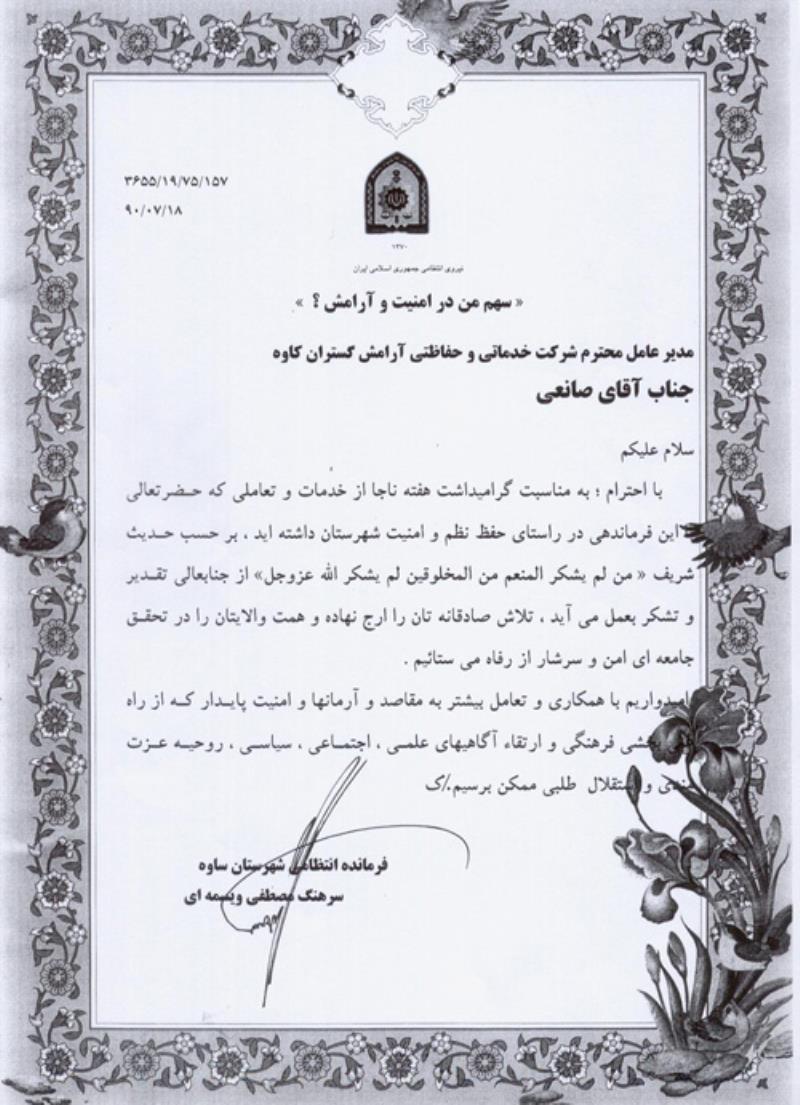 ۳۶۵۵/۱۹/۷۵/۱۵۷
۹۰/۰۷/۱۸
۱۳۷۰
نیروی انتظامی جمهوری اسلامی ایران
« سهم من در امنیت و آرامش ؟ »
مدیر عامل محترم شرکت خدماتی و حفاظتی آرامش گستران کاوه
جناب آقای صانعی
سلام علیکم
با احترام ؛ به مناسبت گرامیداشت هفته ناجا از خدمات و تعاملی که حضرتعالی
این فرماندهی در راستای حفظ نظم و امنیت شهرستان داشته اید ، بر حسب حدیث
شریف « من لم یشکر المنعم من المخلوقین لم یشکر الله عزوجل» از جنابعالی تقدیر
و تشکر بعمل می آید ، تلاش صادقانه تان را ارج نهاده و همت والایتان را در تحقق
جامعه ای امن و سرشار از رفاه می ستائیم .
امیدواریم با همکاری و تعامل بیشتر به مقاصد و آرمانها و امنیت پایدار که از راه
بخشی فرهنگی و ارتقاء آگاهیهای علمی ، اجتماعی ، سیاسی ، روحیه عزت
و استقلال طلبی ممکن برسیم./ک
فرمانده انتظامی شهرستان ساوه
سرهنگ مصطفی ویسمه ای